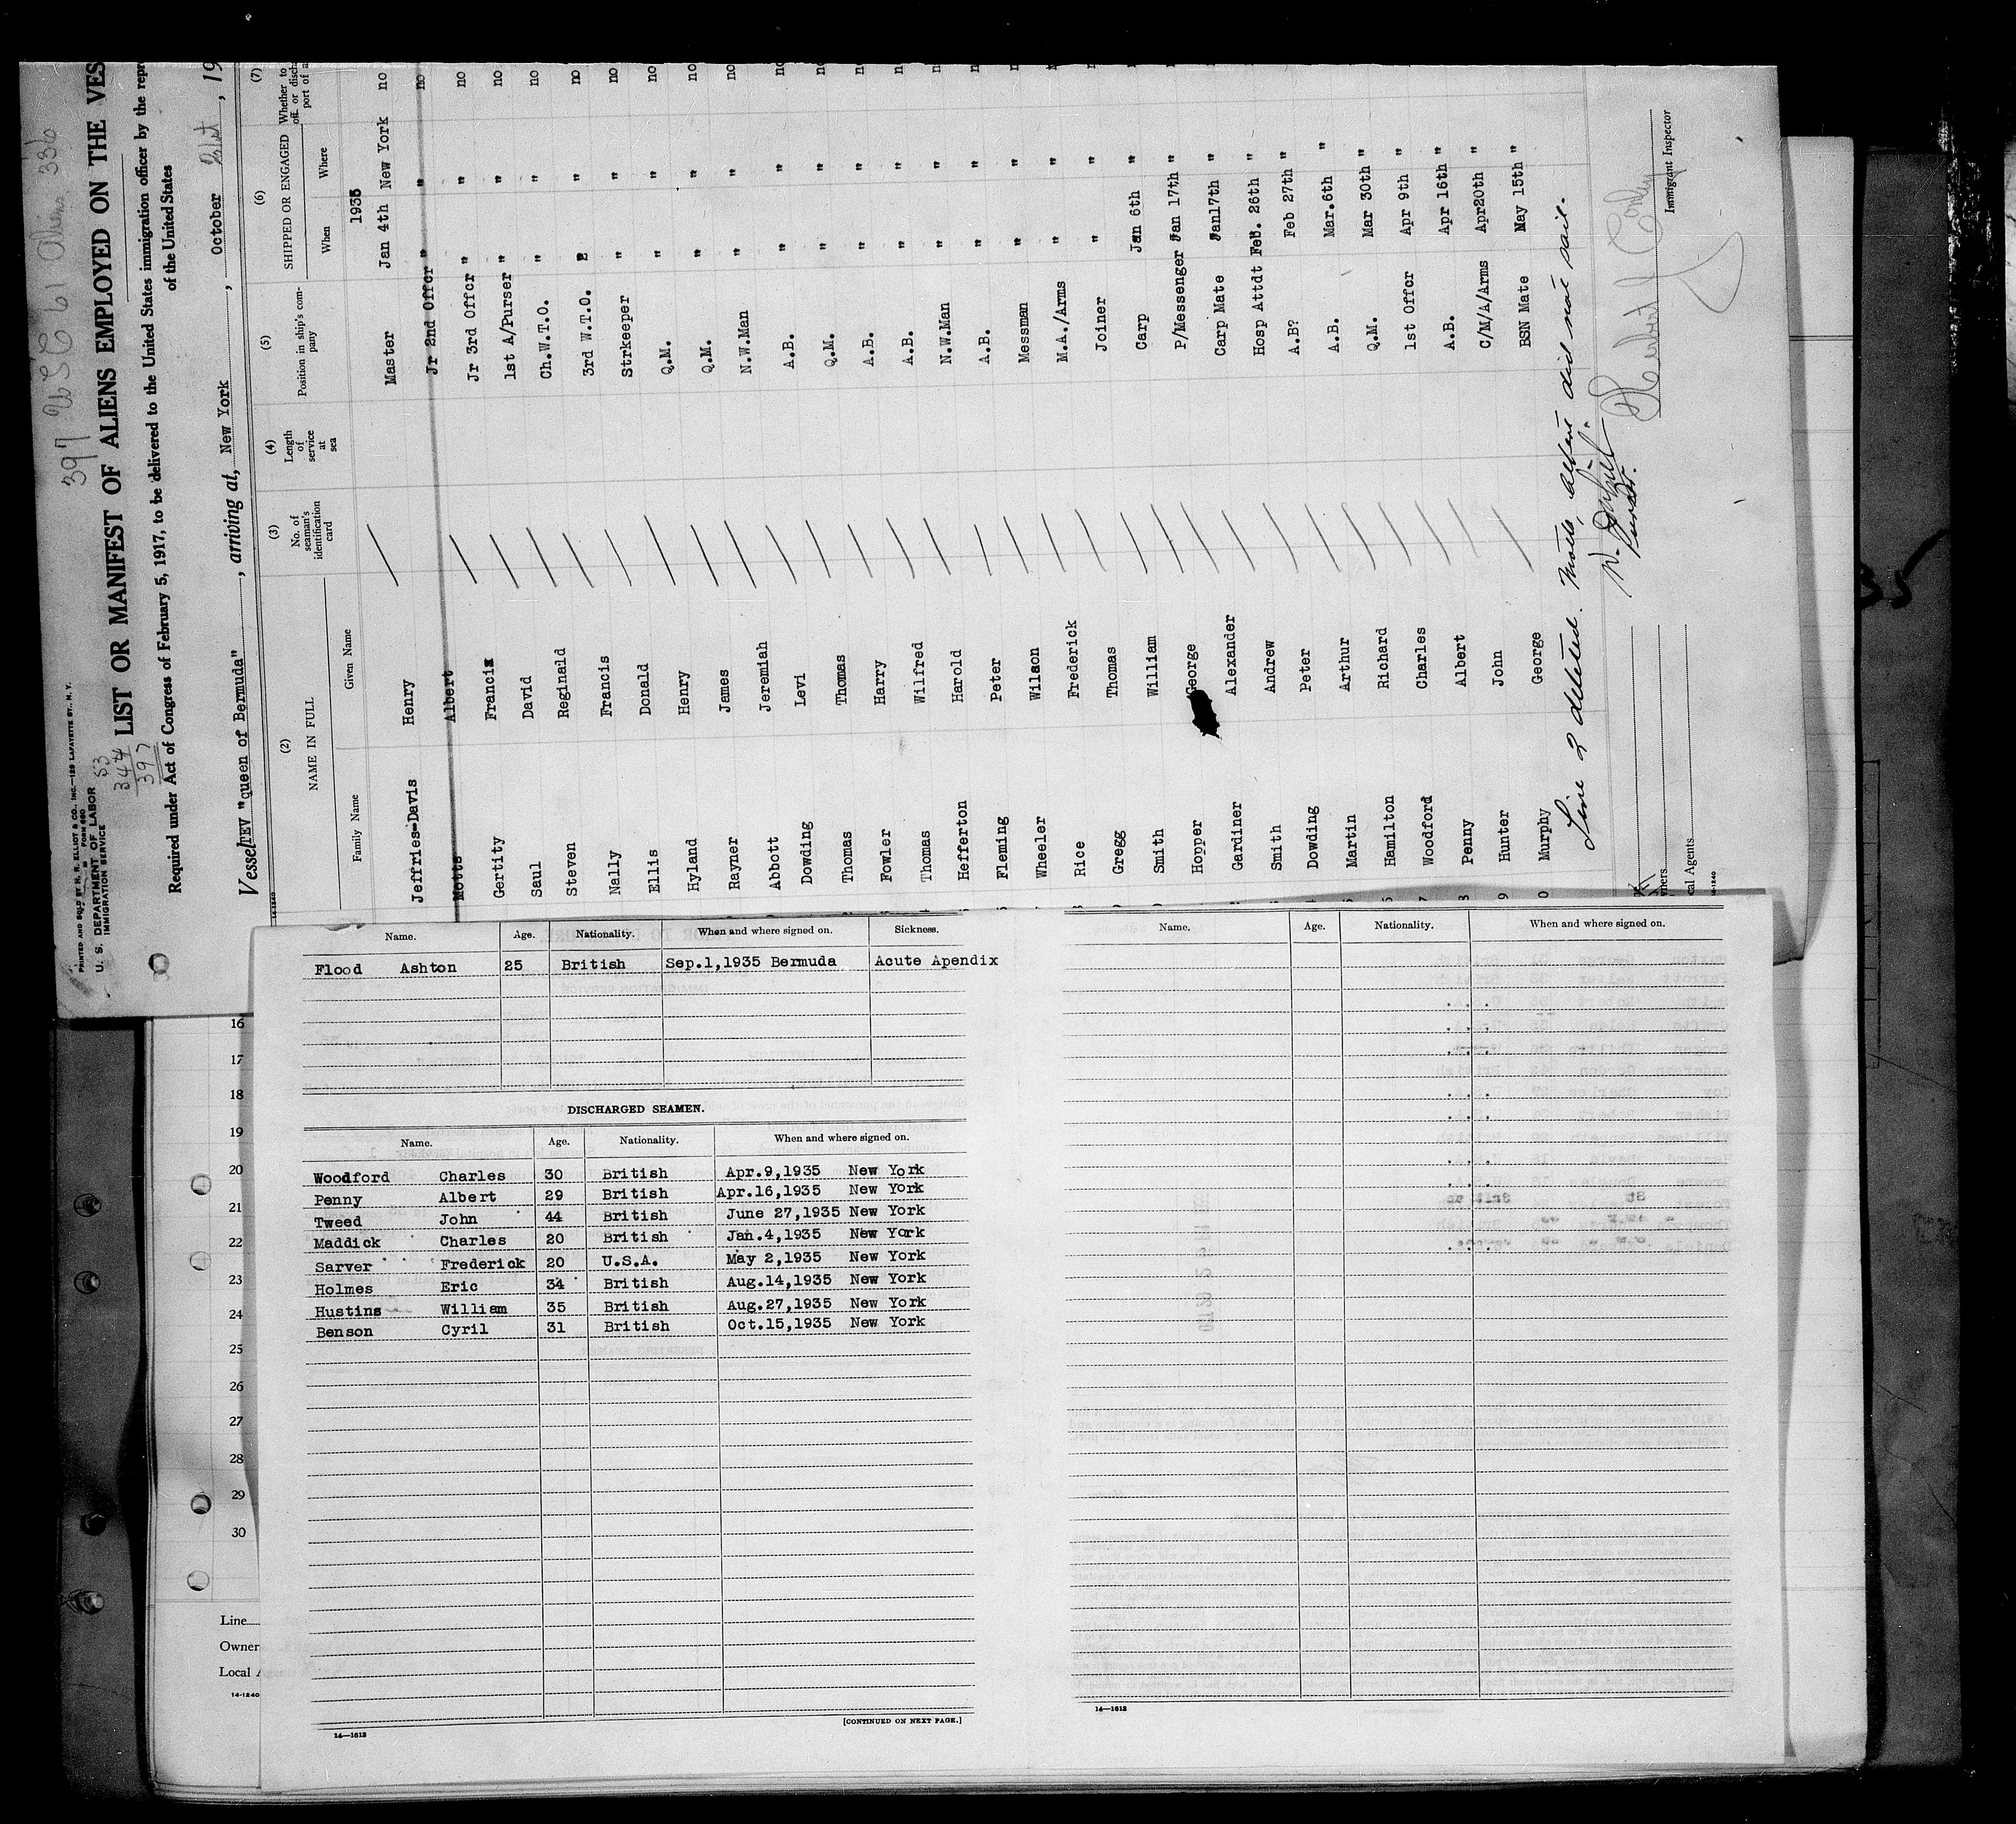 397 USC 61 Aliens 336
PRINTED AND SOLD BY H. R. ELLIOT & CO., INC.—129 LAFAYETTE ST., N. Y.
FORM 680
U. S. DEPARTMENT OF LABOR
IMMIGRATION SERVICE
53
344
397
LIST OR MANIFEST OF ALIENS EMPLOYED ON THE VES
Required under Act of Congress of February 5, 1917, to be delivered to the United States immigration officer by the repre
of the United States
Vessel TEV "queen of Bermuda", arriving at, New York, October 21st, 19
14-1240
(2) (3) (4) (5) (6) (7)
NAME IN FULL No. of seaman's identification card Length of service at sea Position in ship's company SHIPPED OR ENGAGED Whether to
off. or discha
port of a
Family Name Given Name When Where
1935
Jeffries-Davis Henry Master Jan 4th New York no
Motts Albert Jr 2nd Offcr " " no
Gertity Francis Jr 3rd Offcr " " no
Saul David 1st A/Purser " " no
Steven Reginald Ch.W.T.O. " " no
Nally Francis 3rd W.T.O. " " no
Ellis Donald Strkeeper " " no
Hyland Henry Q.M. " " no
Rayner James Q.M. " " no
Abbott Jeremiah N.W.Man " " no
Dowding Levi A.B. " " no
Thomas Thomas Q.M. " " no
Fowler Harry A.B. " " no
Thomas Wilfred A.B. " " no
Hefferton Harold N.W.Man " " no
Fleming Peter A.B. " " n
Wheeler Wilson Messman " " n
Rice Frederick M.A./Arms " "
Gregg Thomas Joiner " " n
Smith William Carp Jan 6th "
Hopper George P/Messenger Jan 17th "
Gardiner Alexander Carp Mate Jan17th "
Smith Andrew Hosp Attdt Feb. 26th "
Dowding Peter A.B? Feb 27th "
Martin Arthur A.B. Mar.6th "
Hamilton Richard Q.M. Mar 30th "
Woodford Charles 1st Offcr Apr 9th "
Penny Albert A.B. Apr 16th "
9 Hunter John C/M/A/Arms Apr20th "
0 Murphy George BSN Mate May 15th "
Line 2 deleted. Motts, Albert did not sail.
Purser.
Immigrant Inspector
wners
cal Agents
14-1240
Name. Age. Nationality. When and where signed on. Sickness.
Flood Ashton 25 British Sep.1,1935 Bermuda Acute Apendix
DISCHARGED SEAMEN.
Name. Age. Nationality. When and where signed on.
Woodford Charles 30 British Apr.9,1935 New York
Penny Albert 29 British Apr.16,1935 New York
Tweed John 44 British June 27,1935 New York
Maddick Charles 20 British Jan.4,1935 New York
Sarver Frederick 20 U.S.A. May 2,1935 New York
Holmes Eric 34 British Aug.14,1935 New York
Hustins William 35 British Aug.27,1935 New York
Benson Cyril 31 British Oct.15,1935 New York
14—1613
[CONTINUED ON NEXT PAGE.]
Name. Age. Nationality. When and where signed on.
14—1613
16
17
18
19
20
21
22
23
24
25
26
27
28
29
30
Line
Owner
Local A
14-1240
35